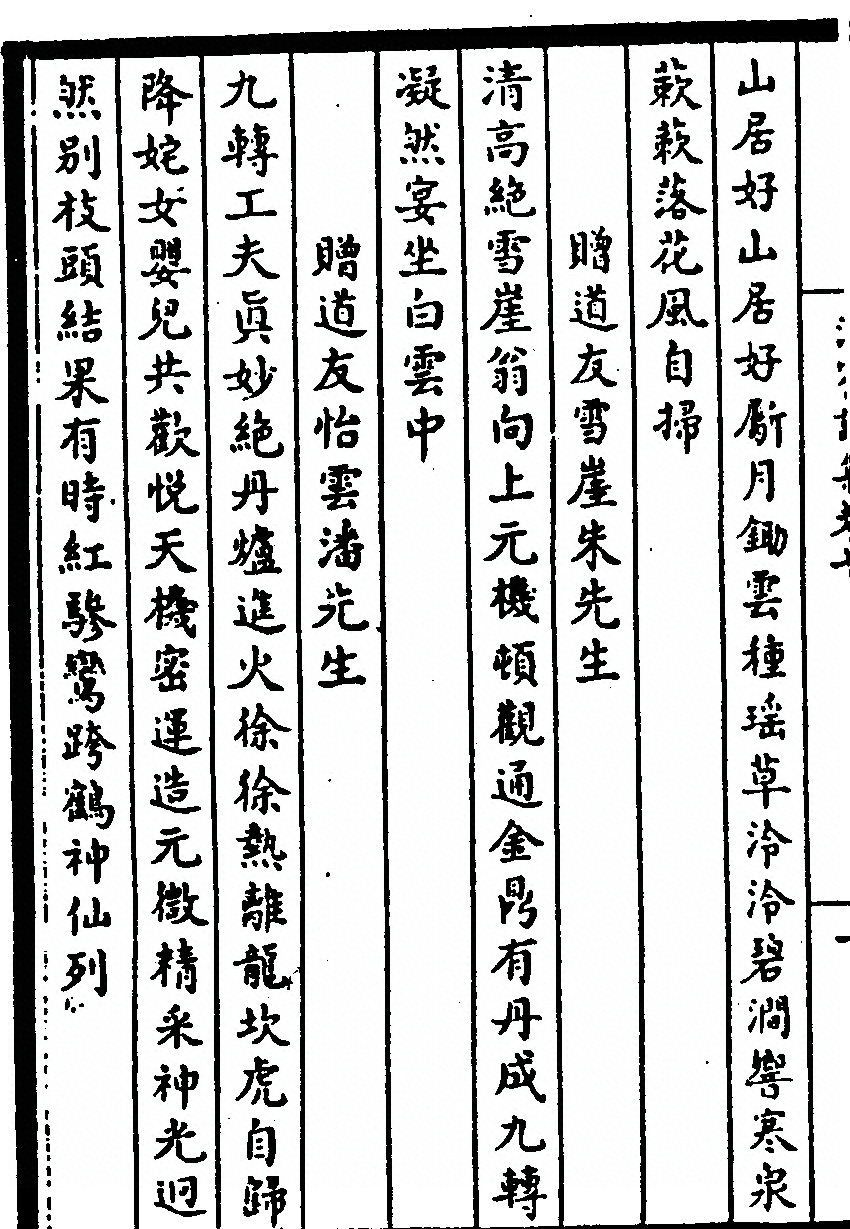 山居好山居好斸月鋤雲種瑶草泠泠碧澗響寒泉
蔌蔌落花風自掃
贈道友雪崖朱先生
清高絶雪崖翁向上元機頓觀通金鼎有丹成九轉
凝然宴坐白雲中
贈道友怡雲潘先生
九轉工夫眞妙絶丹爐進火徐徐熱離龍坎虎自歸
降姹女嬰兒共歡悦天機密運造元微精采神光迥
然别枝頭結果有時紅驂鸞跨鶴神仙列